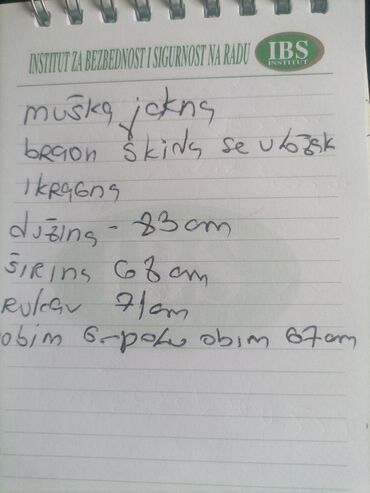 INSTITUT ZA BEZBEDNOST I SIGURNOST NA RADU IBS INSTITUT
muška jakna
braon škida se uložak
i kragna
dužina - 83 cm
širina 68 cm
rukav 71 cm
obim 6-polu obim 67 cm